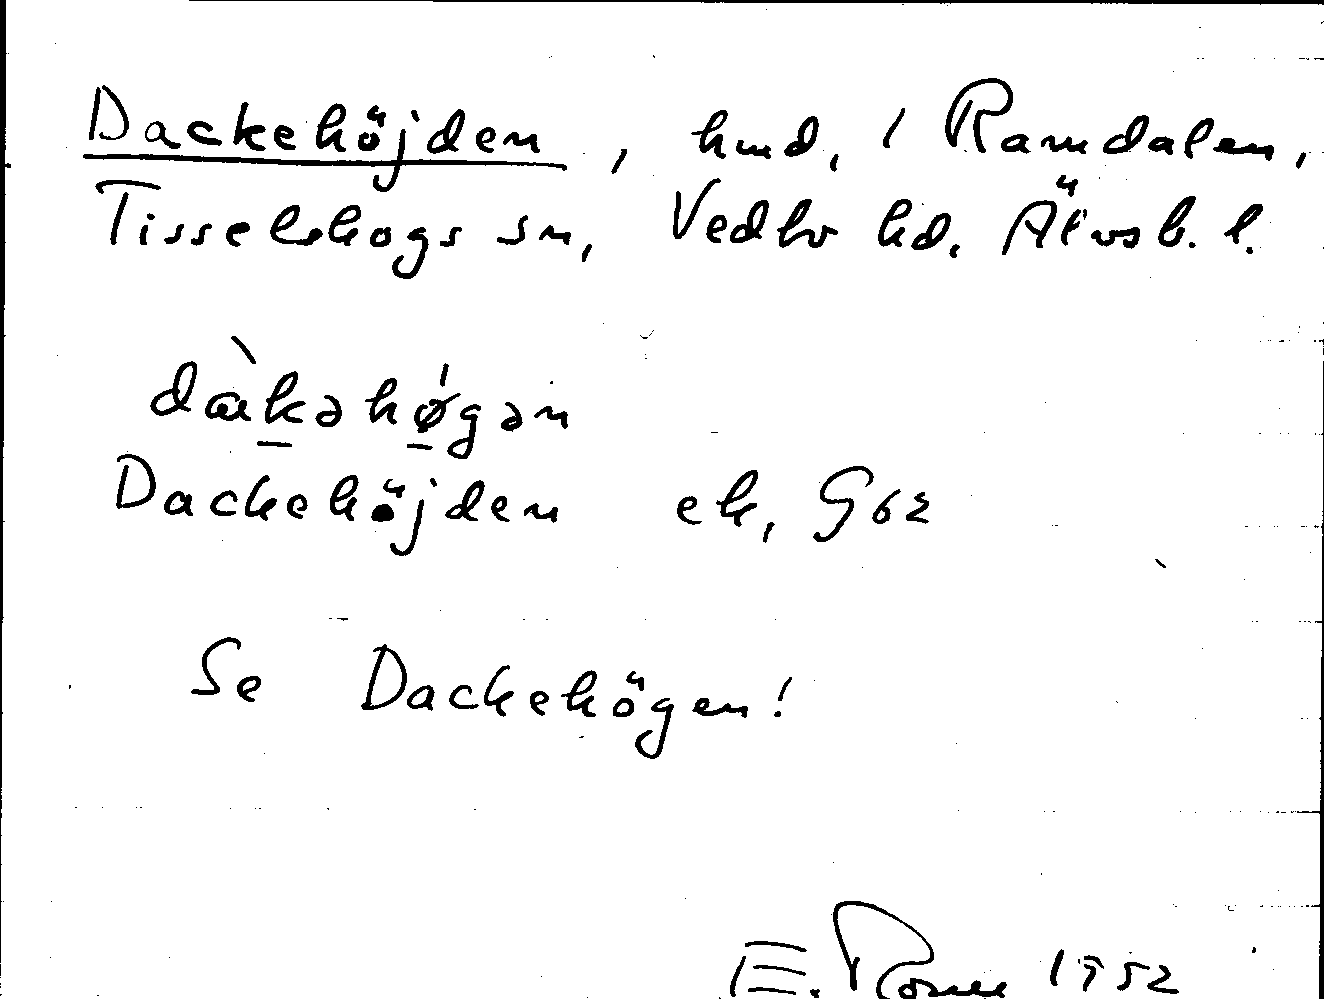 Dackehöjden, hmd, 1 Ramdalen,
Tisselskogs sn, Vedbo hd. Älvsb. l.
dàkəhǿgən
Dackehöjden ek, G62
Se Dackehögen!
E. 1952